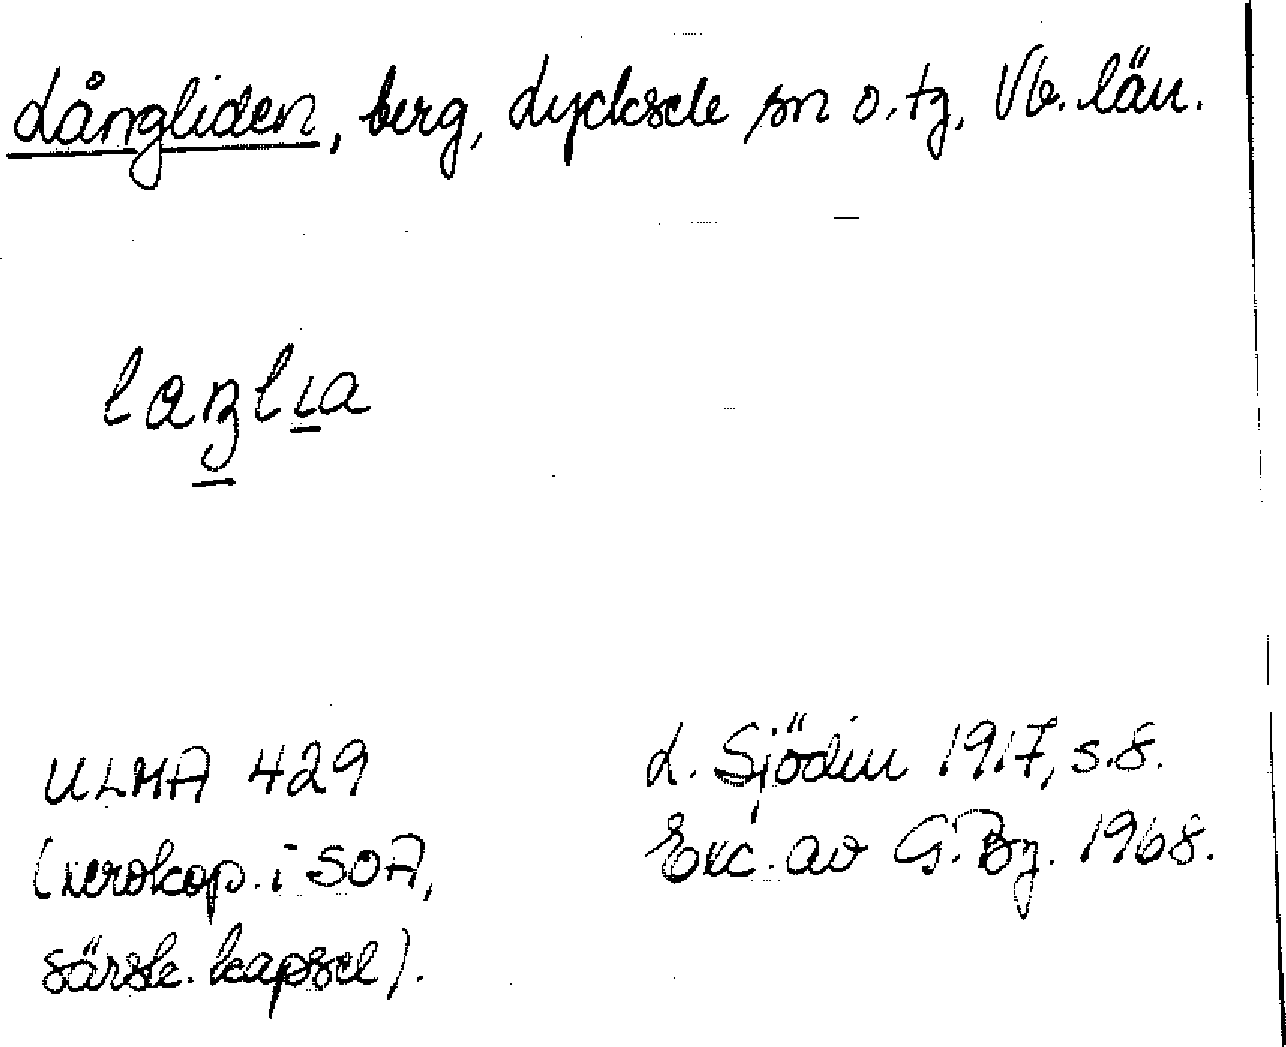 Långliden, berg, Lycksele sn o. tg, Vb. län.
laŋlıa
ULMA 429
(xerokop. i SOA,
särsk. kapsel).
L. Sjödin 1917, s. 8.
Exc. av G. Bg. 1968.